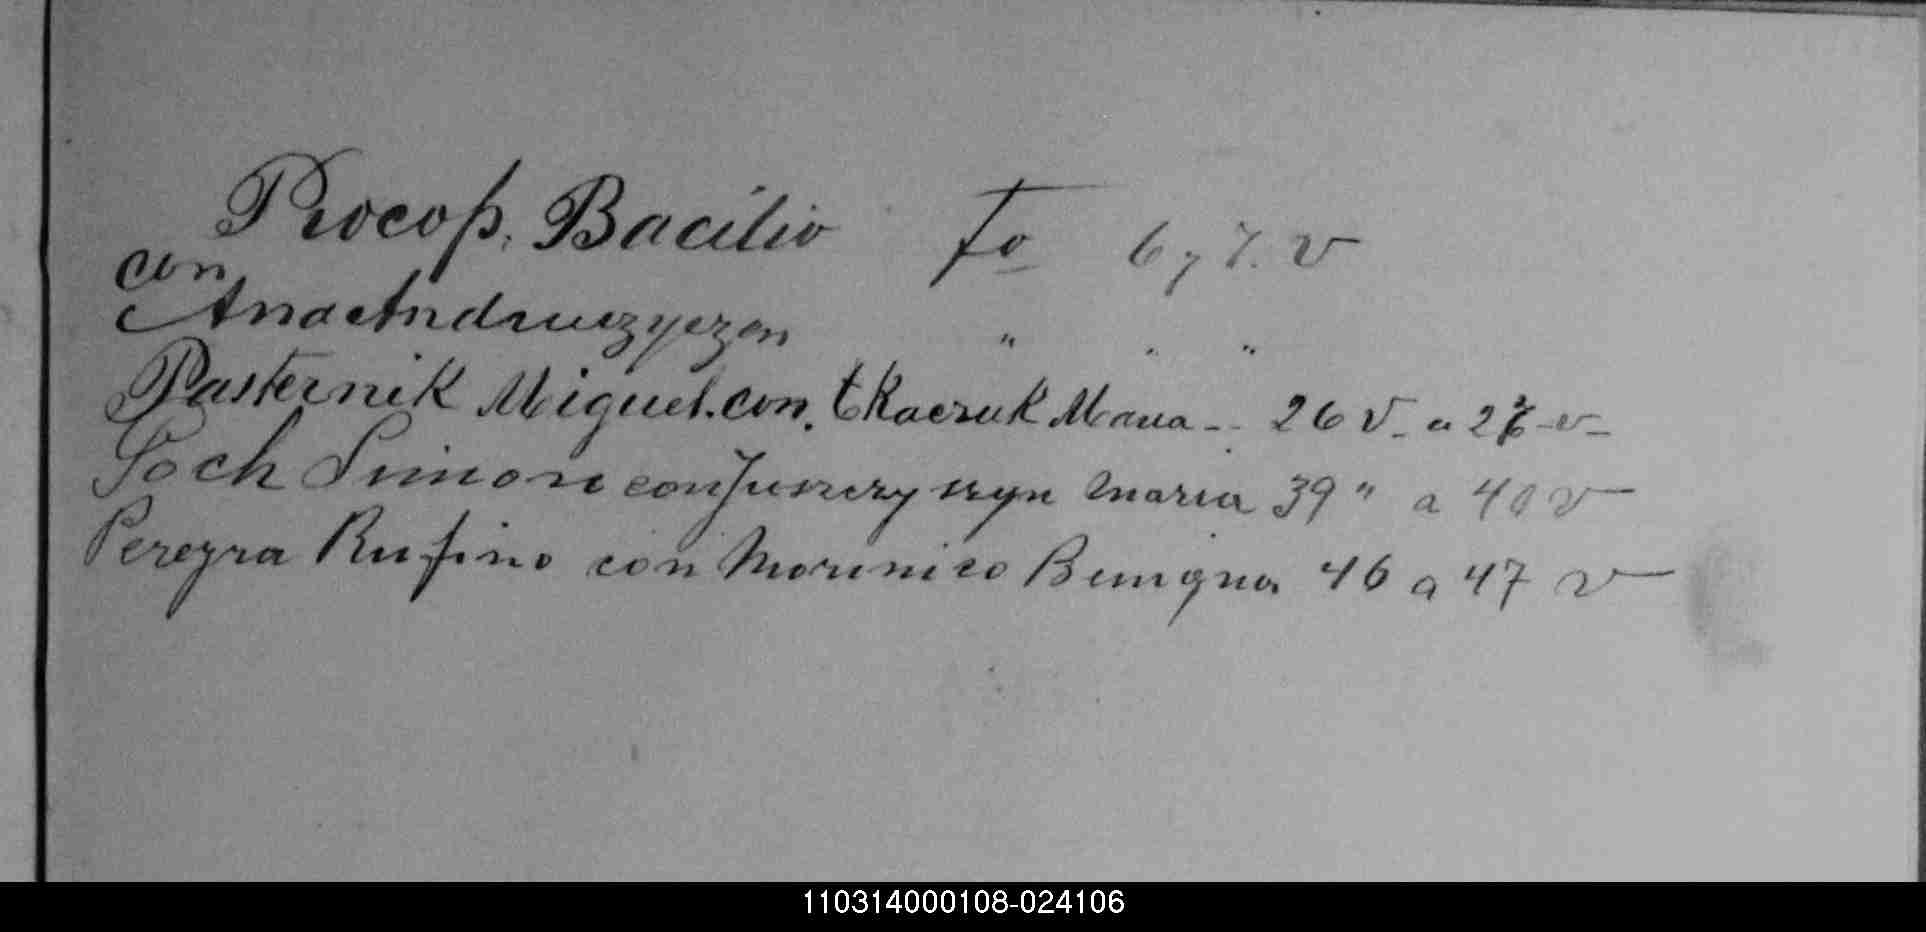 Procop, Bacilio Fo 6 y 7. v
con
Ana Andruszyczen " " "
Pasternik Miguel. con. tKaczuk Maria -- 26 v. a 27 - v -
Poch Simon con Juszczyszyn Maria 39 " a 40 v
Pereyra Rufino con Morinico Benigna 46 a 47 v
110314000108-024106